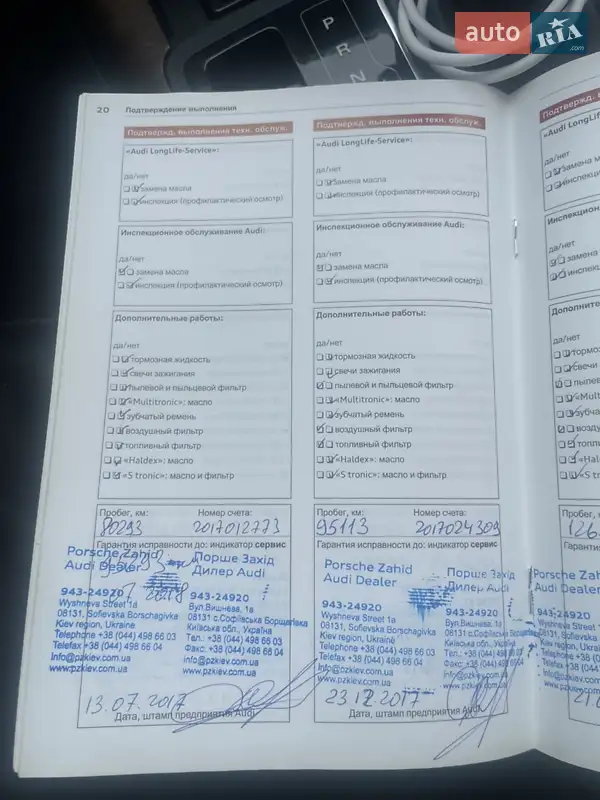 auto RIA .com
P
R
N
20 Подтверждение выполнения
Подтвержд. выполнения техн. обслуж.
«Audi LongLife-Service»:
да/нет
замена масла
инспекция (профилактический осмотр)
Инспекционное обслуживание Audi:
да/нет
замена масла
инспекция (профилактический осмотр)
Дополнительные работы:
да/нет
тормозная жидкость
свечи зажигания
пылевой и пыльцевой фильтр
«Multitronic»: масло
зубчатый ремень
воздушный фильтр
топливный фильтр
«Haldex»: масло
«S tronic»: масло и фильтр
Пробег, км: Номер счета:
80293 2017012773
Гарантия исправности до: индикатор сервис
Porsche Zahid
Audi Dealer
Порше Захід
Дилер Audi
943-24920
Wyshneva Street 1a
08131, Sofievska Borschagivka
Kiev region, Ukraine
Telephone +38 (044) 498 66 03
Telefax +38 (044) 498 66 04
Info@pzkiev.com.ua
www.pzkiev.com.ua
943-24920
Вул.Вишнева, 1а
08131 с.Софіївська Борщагівка
Київська обл., Україна
Тел. +38 (044) 498 66 03
Факс. +38 (044) 498 66 04
info@pzkiev.com.ua
www.pzkiev.com.ua
13.07.2017
Дата, штамп предприятия Audi
Подтвержд. выполнения техн. обслуж.
«Audi LongLife-Service»:
да/нет
замена масла
инспекция (профилактический осмотр)
Инспекционное обслуживание Audi:
да/нет
замена масла
инспекция (профилактический осмотр)
Дополнительные работы:
да/нет
тормозная жидкость
свечи зажигания
пылевой и пыльцевой фильтр
«Multitronic»: масло
зубчатый ремень
воздушный фильтр
топливный фильтр
«Haldex»: масло
«S tronic»: масло и фильтр
Пробег, км: Номер счета:
95113 2017024309
Гарантия исправности до: индикатор сервис
Porsche Zahid
Audi Dealer
Порше Захід
Дилер Audi
943-24920
Wyshneva Street 1a
08131, Sofievska Borschagivka
Kiev region, Ukraine
Telephone +38 (044) 498 66 03
Telefax +38 (044) 498 66 04
Info@pzkiev.com.ua
www.pzkiev.com.ua
943-24920
Вул.Вишнева, 1а
08131 с.Софіївська
Київська обл., Україна
Тел. +38 (044) 498 66 03
Факс. +38 (044) 498 66 04
info@pzkiev.com.ua
www.pzkiev.com.ua
23.12.2017
Дата, штамп предприятия Audi
Подтвержд.
«Audi LongLife
да/нет
замена
инспекция
да/нет
да/нет
тормозная
свечи
Пробег,
126
Гарантия
Porsche Zahid
Audi Dealer
943-24920